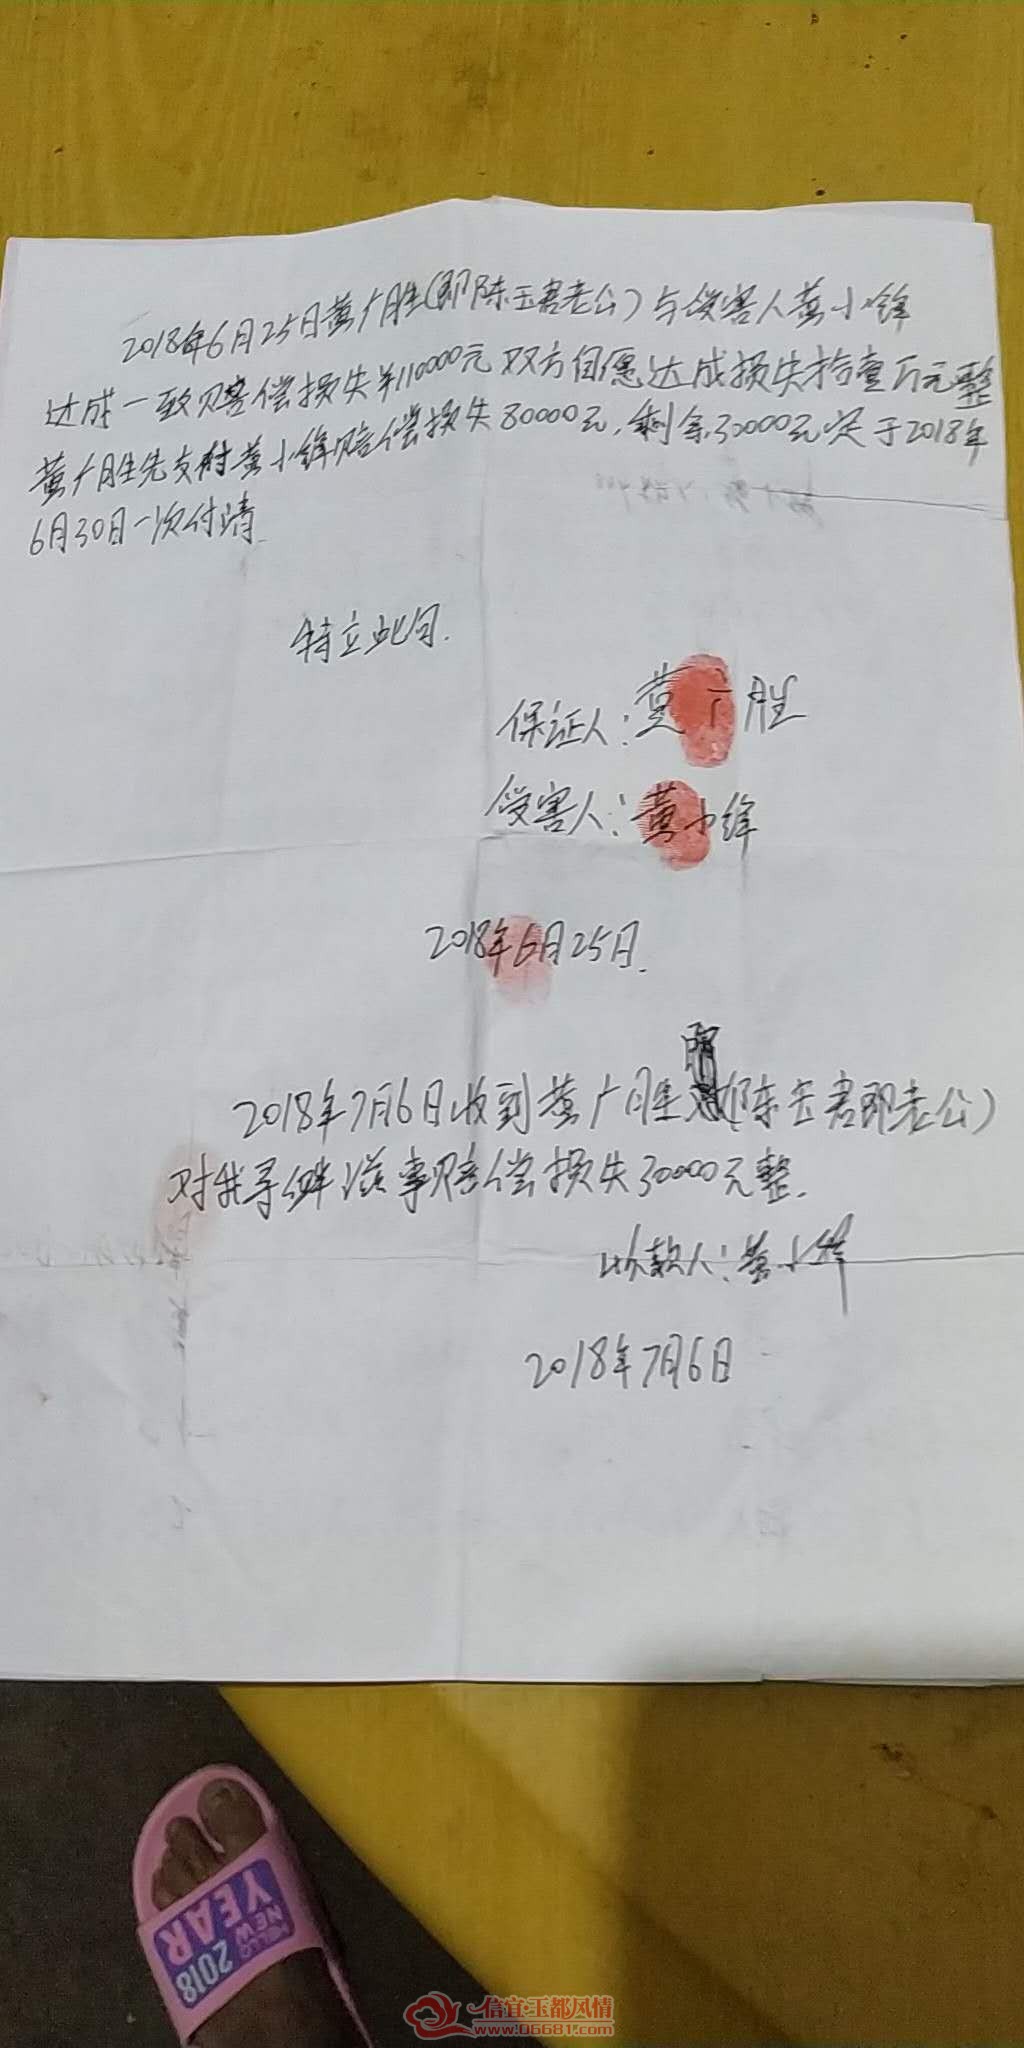 2018年6月25日黄广胜(即陈玉君老公)与受害人黄小锋
达成一致赔偿损失¥110000元双方自愿达成损失拾壹万元整
黄广胜先支付黄小锋赔偿损失80000元,剩余30000元定于2018年
6月30日一次付清.
特立此句.
保证人:黄广胜
受害人:黄小锋
2018年6月25日.
2018年7月6日收到黄广胜(陈玉君即老公)
对我寻衅滋事赔偿损失30000元整.
收款人:黄小锋
2018年7月6日
HELLO
NEW
YEAR
2018
信宜玉都风情
www.06681.com